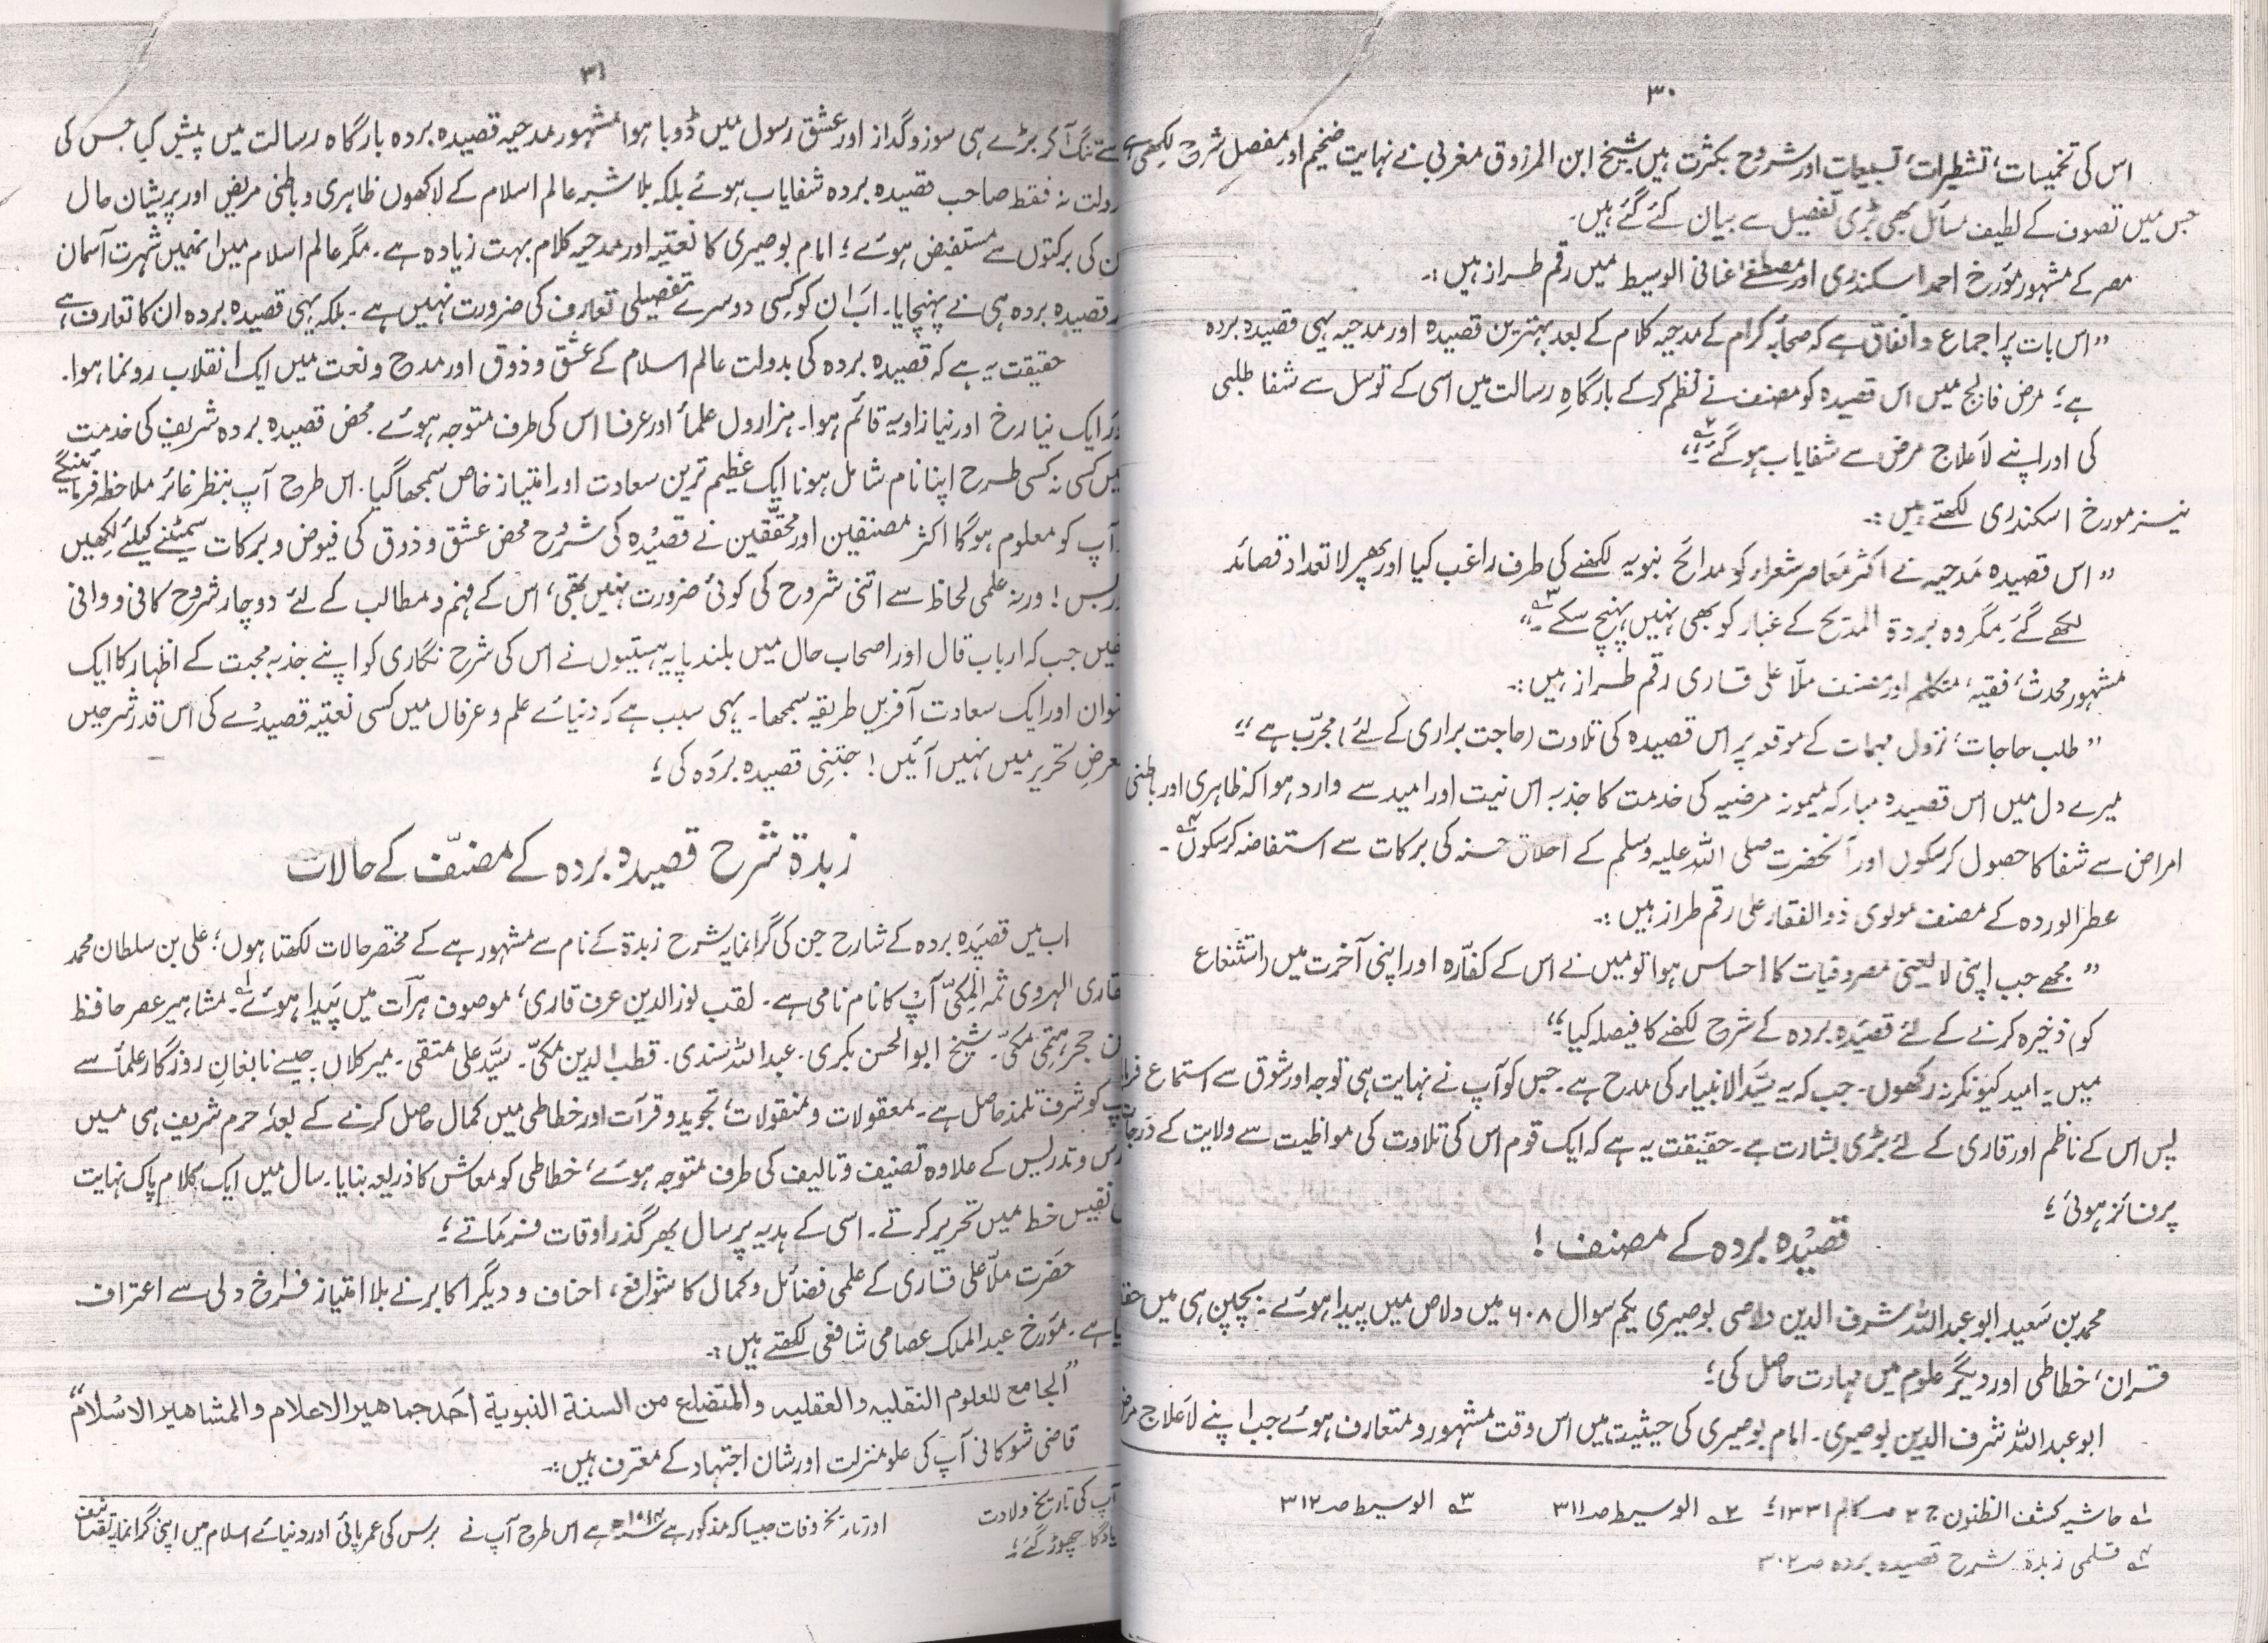 ۳۰
اس کی تخمیسات، تشطیرات، تسبیعات اور شروح بکثرت ہیں شیخ ابن المرزوق مغربی نے نہایت ضخیم اور مفصل شرح لکھی ہے
جس میں تصوف کے لطیف مسائل بھی بڑی تفصیل سے بیان کئے گئے ہیں۔
مصر کے مشہور مؤرخ احمد اسکندری اور مصطفےٰ عنانی الوسیط میں رقم طراز ہیں :۔
”اس بات پر اجماع و اتفاق ہے کہ صحابہ کرام کے مدحیہ کلام کے بعد بہترین قصیدہ اور مدحیہ یہی قصیدہ بردہ
ہے؛ مرض فالج میں اس قصیدہ کو مصنف نے نظم کر کے بارگاہِ رسالت میں اسی کے توسل سے شفا طلبی
کی اور اپنے لاعلاج مرض سے شفایاب ہو گئے؛“ ۲؎
نیز مورخ اسکندری لکھتے ہیں :۔
”اس قصیدہ مدحیہ نے اکثر معاصر شعراء کو مدائح نبویہ لکھنے کی طرف راغب کیا اور پھر لاتعداد قصائد
لکھے گئے۔ مگر وہ بردۃ المدیح کے غبار کو بھی نہیں پہنچ سکے۔“ ۳؎
مشہور محدث، فقیہ، متکلم اور مصنف ملّا علی قاری رقم طراز ہیں :۔
”طلب حاجات، نزول مہمات کے موقعہ پر اس قصیدہ کی تلاوت (حاجت براری کے لئے) مجرّب ہے؛“
میرے دل میں اس قصیدہ مبارکہ میمونہ مرضیہ کی خدمت کا جذبہ اس نیت اور امید سے وارد ہوا کہ ظاہری اور باطنی
امراض سے شفا کا حصول کر سکوں اور آنحضرت صلی اللہ علیہ وسلم کے اخلاق حسنہ کی برکات سے استفاضہ کر سکوں ۴؎۔
عطر الوردہ کے مصنف مولوی ذوالفقار علی رقم طراز ہیں :۔
”مجھے جب اپنی لایعنی مصروفیات کا احساس ہوا تو میں نے اس کے کفّارہ اور اپنی آخرت میں (استنفاع
کو) ذخیرہ کرنے کے لئے قصیدہ بردہ کے شرح لکھنے کا فیصلہ کیا؛“
میں یہ امید کیونکر نہ رکھوں۔ جب کہ یہ سیّد الانبیاء کی مدح ہے۔ جس کو آپ نے نہایت ہی توجہ اور شوق سے استماع
پس اس کے ناظم اور قاری کے لئے بڑی بشارت ہے۔ حقیقت یہ ہے کہ ایک قوم اس کی تلاوت کی مواظبت سے ولایت کے درجات
پر فائز ہوئی؛
قصیدہ بردہ کے مصنف !
محمد بن سعید ابو عبداللہ شرف الدین دلاصی بوصیری یکم سوال ۶۰۸ میں دلاص میں پیدا ہوئے۔ بچپن ہی میں
قرآن، خطاطی اور دیگر علوم میں مہارت حاصل کی؛
ابو عبداللہ شرف الدین بوصیری۔ امام بوصیری کی حیثیت میں اس وقت مشہور و متعارف ہوئے جب اپنے لاعلاج مرض
۱؎ حاشیہ کشف الظنون ج ۲ ص ۱۳۳۱؛ ۲؎ الوسیط صـ ۳۱۱ ۳؎ الوسیط صـ ۳۱۲
۴؎ قلمی زبدۃ شرح قصیدہ بردہ صـ ۳۰۲
۳۱
سے تنگ آ کر بڑے ہی سوز و گداز اور عشق رسول میں ڈوبا ہوا مشہور مدحیہ قصیدہ بردہ بارگاہ رسالت میں پیش کیا جس کی
دولت نہ فقط صاحب قصیدہ بردہ شفایاب ہوئے بلکہ بلاشبہ عالم اسلام کے لاکھوں ظاہری و باطنی مریض اور پریشان حال
کی برکتوں سے مستفیض ہوئے؛ امام بوصیری کا نعتیہ اور مدحیہ کلام بہت زیادہ ہے۔ مگر عالم اسلام میں انہیں شہرت آسمان
قصیدہ بردہ ہی نے پہنچایا۔ اب ان کو کسی دوسرے تفصیلی تعارف کی ضرورت نہیں ہے۔ بلکہ یہی قصیدہ بردہ ان کا تعارف ہے
حقیقت یہ ہے کہ قصیدہ بردہ کی بدولت عالم اسلام کے عشق و ذوق اور مدح و نعت میں ایک انقلاب رونما ہوا۔
ایک نیا رخ اور نیا زاویہ قائم ہوا۔ ہزاروں علمأ اور عرفا اس کی طرف متوجہ ہوئے۔ محض قصیدہ بردہ شریف کی خدمت
میں کسی نہ کسی طرح اپنا نام شامل ہونا ایک عظیم ترین سعادت اور امتیاز خاص سمجھا گیا۔ اس طرح آپ بنظر غائر ملاحظہ فرمائینگے
آپ کو معلوم ہوگا اکثر مصنفین اور محقّقین نے قصیدہ کی شروح محض عشق و ذوق کی فیوض و برکات سمیٹنے کیلئے لکھیں
بس! ورنہ علمی لحاظ سے اتنی شروح کی کوئی ضرورت نہیں تھی؛ اس کے فہم و مطالب کے لئے دو چار شروح کافی و وافی
جب کہ ارباب قال اور اصحاب حال میں بلند پایہ ہستیوں نے اس کی شرح نگاری کو اپنے جذبہ محبت کے اظہار کا ایک
عنوان اور ایک سعادت آفریں طریقہ سمجھا۔ یہی سبب ہے کہ دنیائے علم و عرفاں میں کسی نعتیہ قصیدے کی اس قدر شرحیں
معرضِ تحریر میں نہیں آئیں! جتنی قصیدہ بردہ کی؛
زبدۃ شرح قصیدہ بردہ کے مصنّف کے حالات
اب میں قصیدہ بردہ کے شارح جن کی گرانمایہ شرح زبدۃ کے نام سے مشہور ہے کے مختصر حالات لکھتا ہوں؛ علی بن سلطان محمد
قاری الہروی ثمہ المکیّ آپ کا نام نامی ہے۔ لقب نورالدین عرف قاری؛ موصوف ہرات میں پیدا ہوئے ۱؎۔ مشاہیر عصر حافظ
حجر ہیتمی مکیّ۔ شیخ ابوالحسن بکری۔ عبداللہ سندی۔ قطب الدین مکیّ۔ سیّد علی متقی۔ میر کلاں۔ جیسے نابغان روزگار علمأ سے
آپ کو شرف تلمذ حاصل ہے۔ معقولات و منقولات، تجوید و قرأت اور خطاطی میں کمال حاصل کرنے کے بعد، حرم شریف ہی میں
درس و تدریس کے علاوہ تصنیف و تالیف کی طرف متوجہ ہوئے، خطاطی کو معاش کا ذریعہ بنایا۔ سال میں ایک کلام پاک نہایت
نفیس خط میں تحریر کرتے۔ اسی کے ہدیہ پر سال بھر گذر اوقات فرماتے؛
حضرت ملّا علی قاری کے علمی فضائل و کمال کا شوافع، احناف و دیگر اکابر نے بلا امتیاز فراخ دلی سے اعتراف
کیا ہے۔ مؤرخ عبدالملک عصامی شافعی لکھتے ہیں :۔
”الجامع للعلوم النقلیہ والعقلیہ والمتضلع من السنۃ النبویۃ احد جماھیر الاعلام والمشاھیر الاسلام“
قاضی شوکانی آپ کی علو منزلت اور شان اجتہاد کے معترف ہیں :۔
آپ کی تاریخ ولادت اور تاریخ وفات جیسا کہ مذکور ہے ۱۰۱۴ھ ہے اس طرح آپ نے برس کی عمر پائی اور دنیائے اسلام میں اپنی گرانمایہ تصانیف
یادگار چھوڑ گئے؛